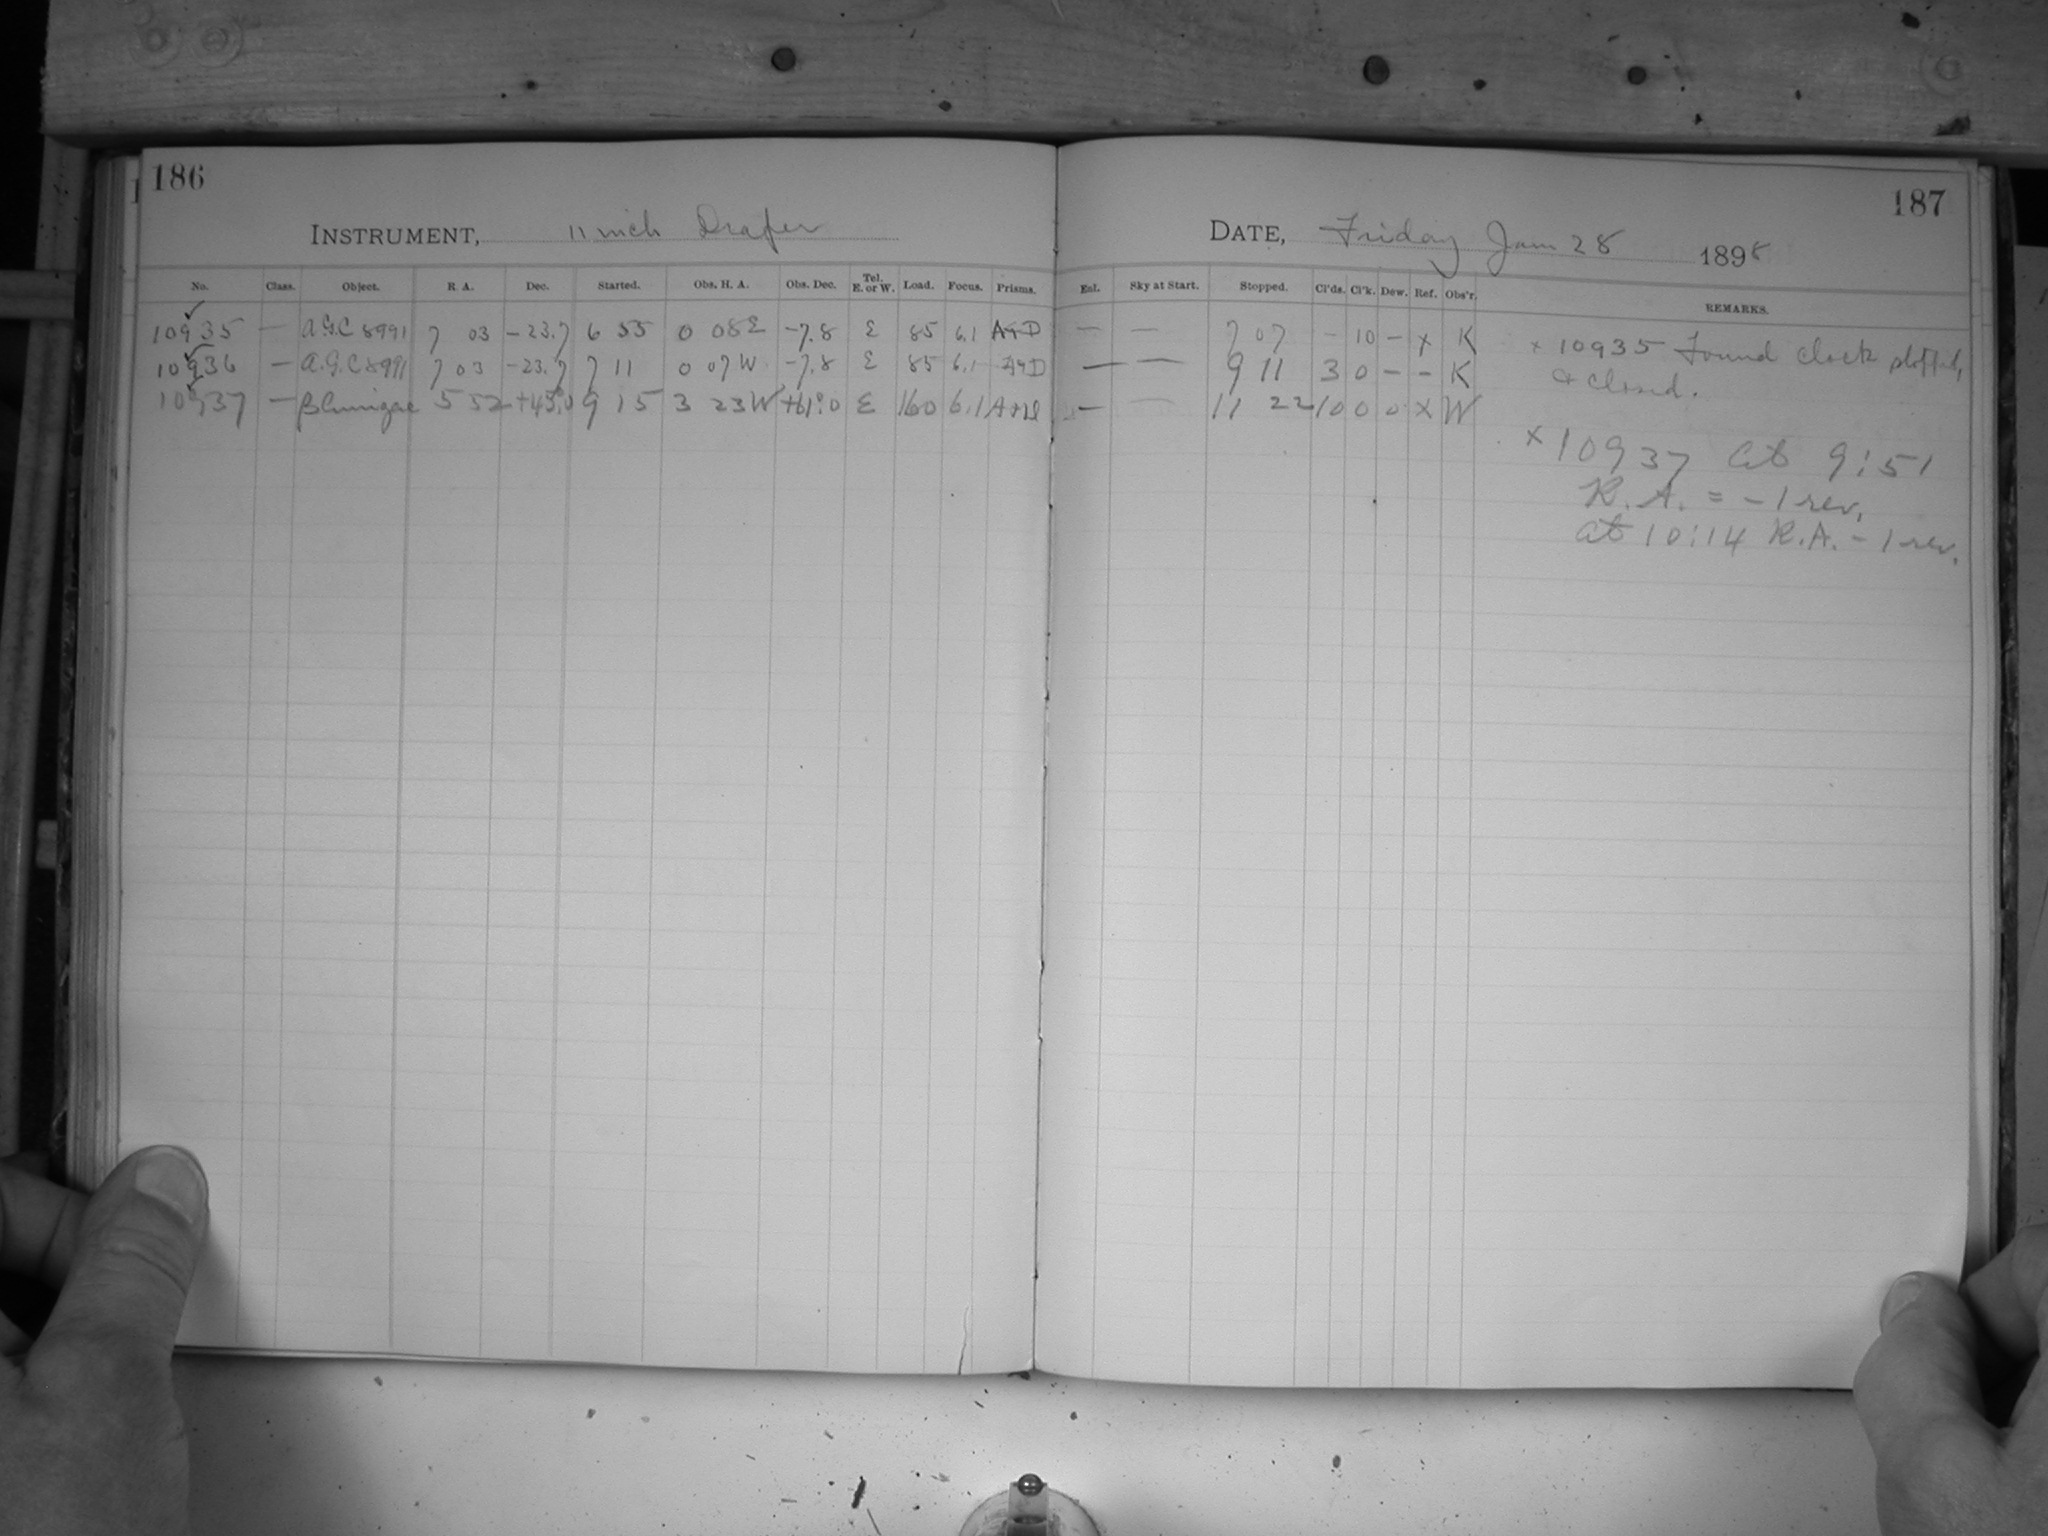 186
INSTRUMENT, 11 inch Draper
No. Class. Object. R. A. Dec. Started. Obs. H. A. Obs. Dec. Tel. E. or W. Load. Focus. Prisms.
10935 — A.G.C 8991 7 03 -23.7 6 55 0 08 E -7.8 E 85 6.1 A+D
10936 — A.G.C 8991 7 03 -23.7 7 11 0 07 W -7.8 E 85 6.1 A+D
10937 — β 5 52 +45.0 9 15 3 23 W +61.0 E 160 6.1
187
DATE, Friday Jan 28 1898
Enl. Sky at Start. Stopped. Cl'ds. Cl'k. Dew. Ref. Obs'r. REMARKS.
— — 7 07 - 10 - x K
— — 9 11 3 0 - - K
— — 11 22 10 0 0 x W
x 10935 Found clock stopped,
& closed.
x 10937 at 9:51
R. A. = - 1 rev,
at 10:14 R.A. - 1 rev,